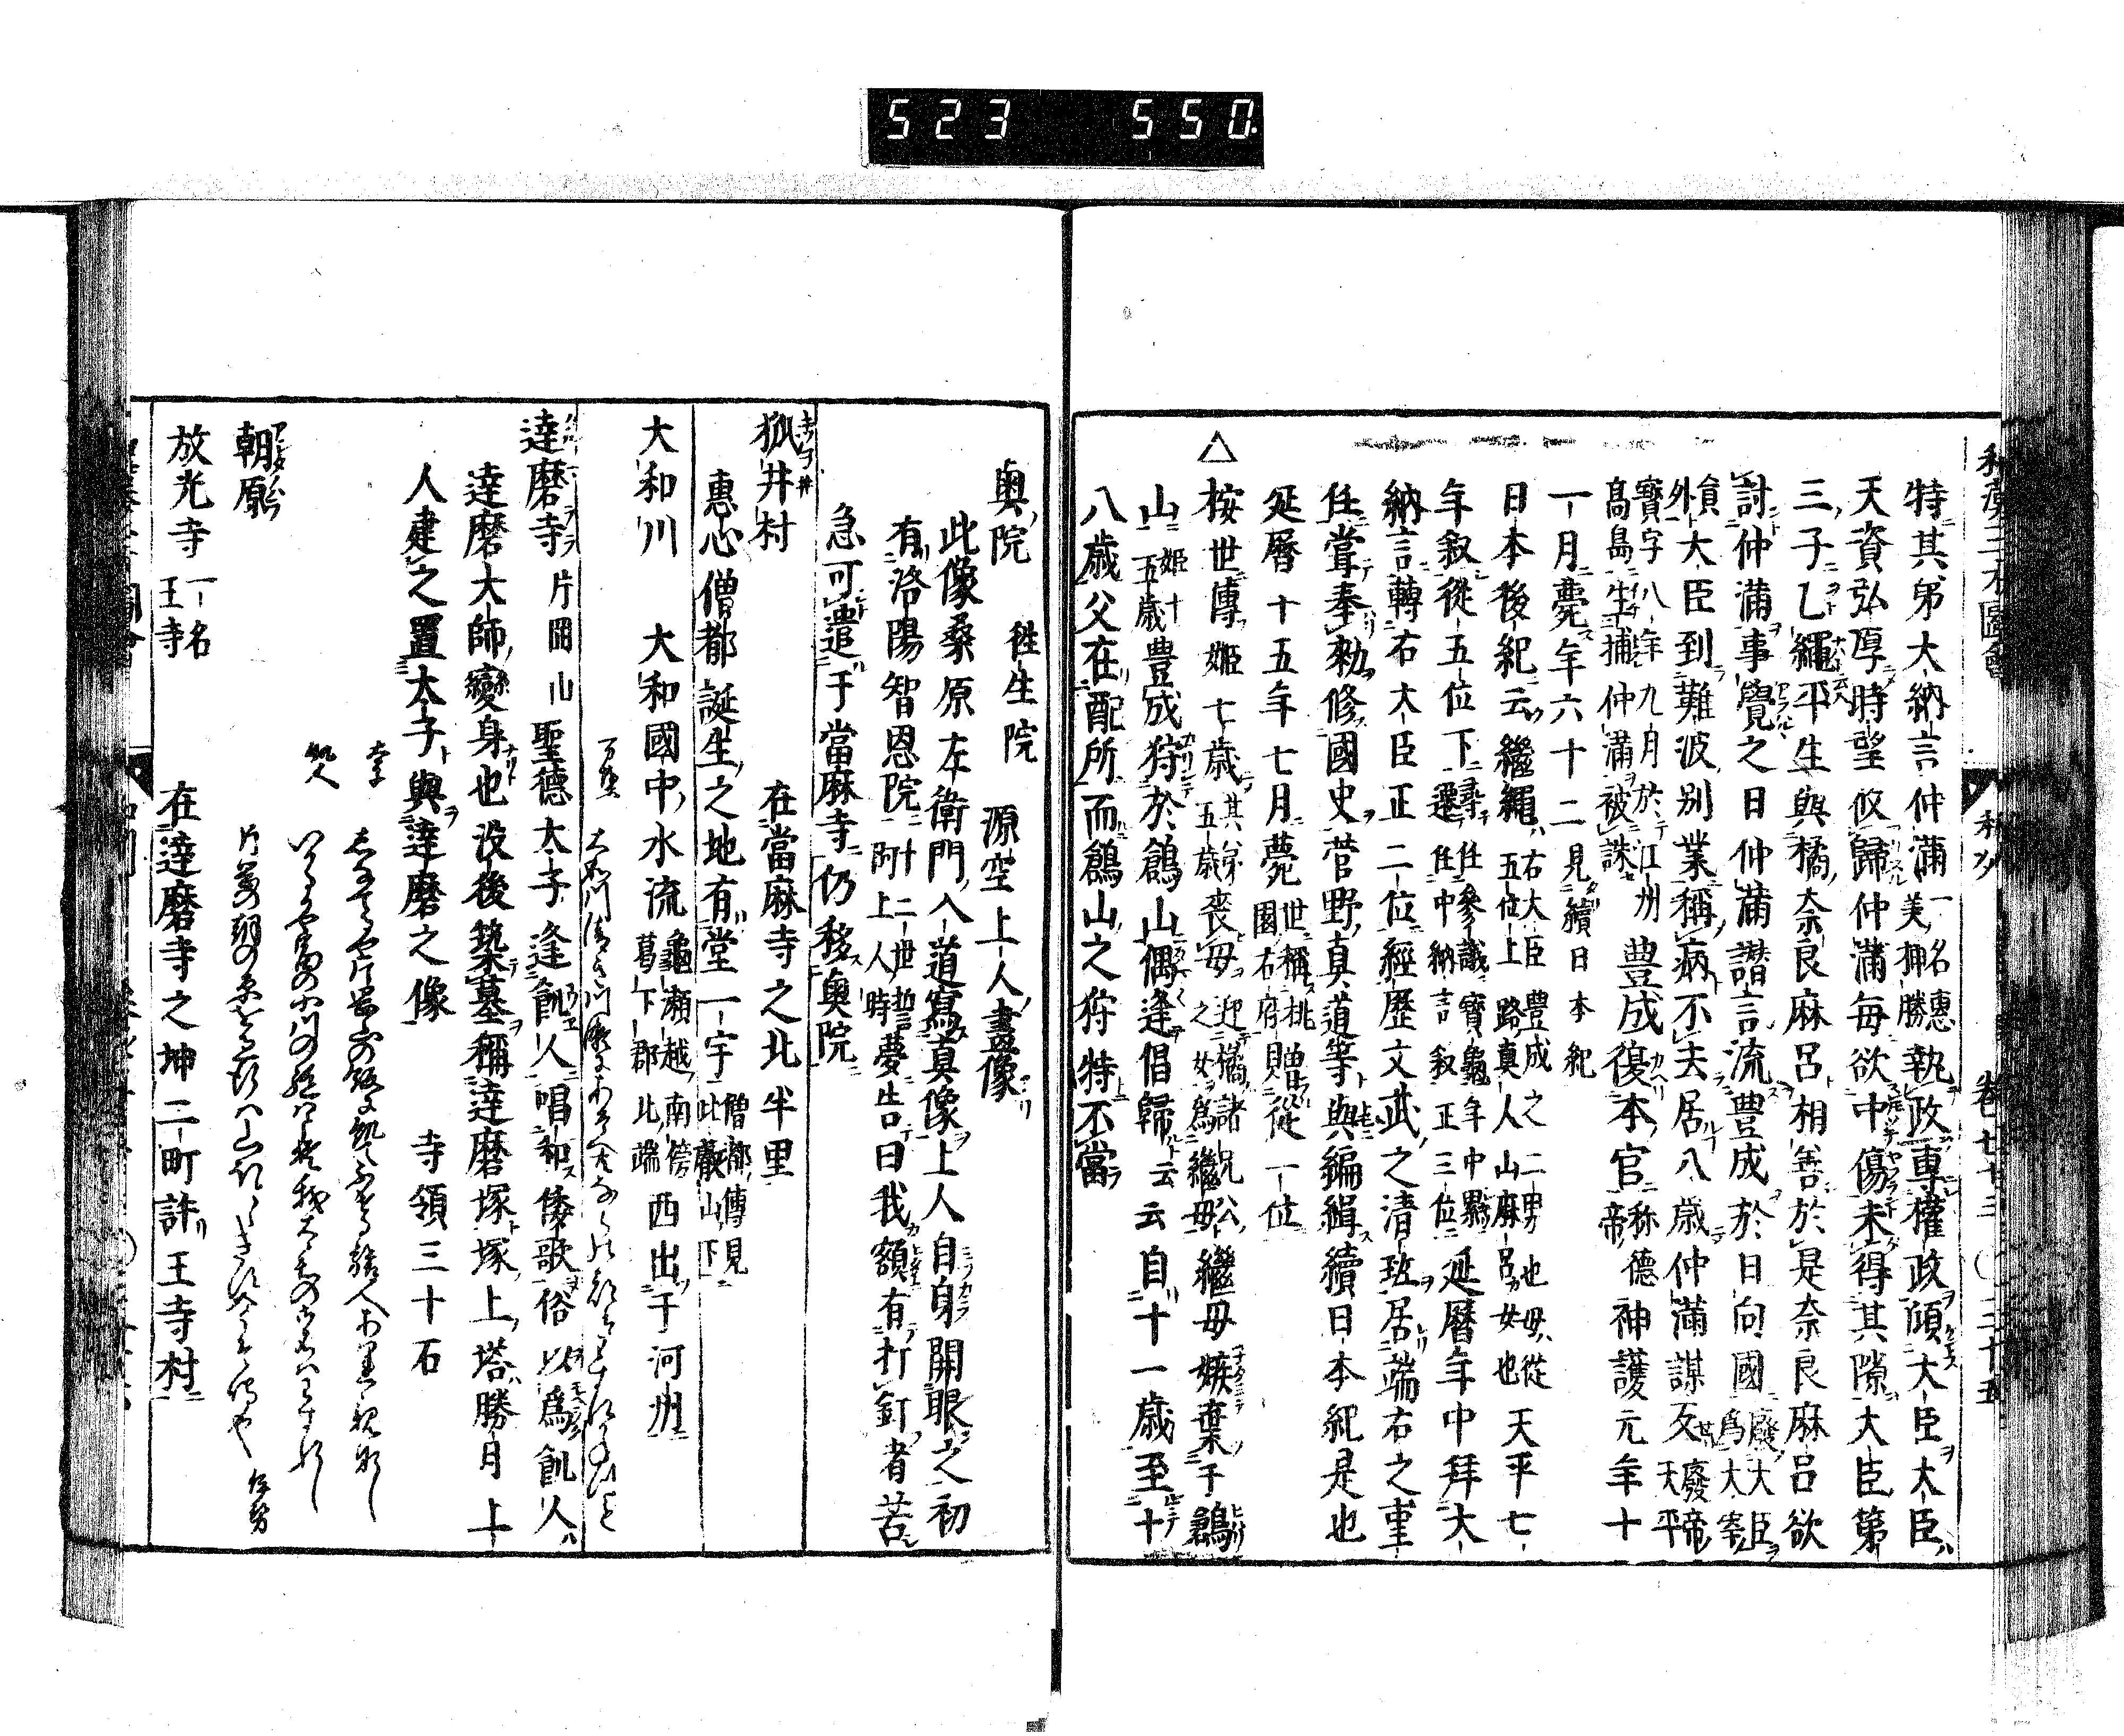 523 550
和漢三才圖會 和州 卷七十三 三十五
特其弟大納言仲滿一名惠美押勝執政專權政傾大臣大臣
天資弘厚時望攸歸仲滿每欲中傷未得其隙大臣第
三子乙繩平生與橘奈良麻呂相善於是奈良麻呂欲
討仲滿事覺之日仲滿譖言流豊成於日向國廢大臣爲大宰
員外大臣到難波別業稱病不去居八歳仲滿謀反廢帝天平
寶字八年九月於江州高島生捕仲滿被誅豊成復本官称德帝神護元年十
一月薨年六十二見續日本紀
日本後紀云繼繩右大臣豊成之二男也母從五位上路真人山麻呂女也天平七
年叙從五位下尋遷任參議寶龜年中累任中納言叙正三位延曆年中拜大
納言轉右大臣正二位經歷文武之清班居端右之重
任甞奉勅修國史菅野真道等與編緝續日本紀是也
延曆十五年七月薨世稱桃園右府贈從一位
△按世傳姬七歳其弟五歳喪母迎橘諸兄公之女爲繼母繼母嫉棄于鶬
山姬十五歳豊成狩於鶬山偶逢倡歸云云自十一歳至十
八歳父在配所而鶬山之狩特不當
奥院 徃生院 源空上人畫像
此像桑原左衛門入道寫真像上人自身開眼之初
有洛陽智恩院十二世誓阿上人時夢告曰我額有打釘者苦
急可遣于當麻寺仍移奥院
狐井村 在當麻寺之北半里
惠心僧都誕生之地有堂一宇僧都傳見此嚴山下
大和川 大和國中水流龜瀬越南傍葛下郡北端西出于河州
達磨寺 片岡山 聖德太子逢飢人唱和倭歌俗以爲飢人
達磨大師變身也没後築墓稱達磨塚塚上塔勝月上
人建之置太子與達磨之像 寺領三十石
太子
飢人
朝原
放光寺 一名王寺 在達磨寺之坤二町許王寺村